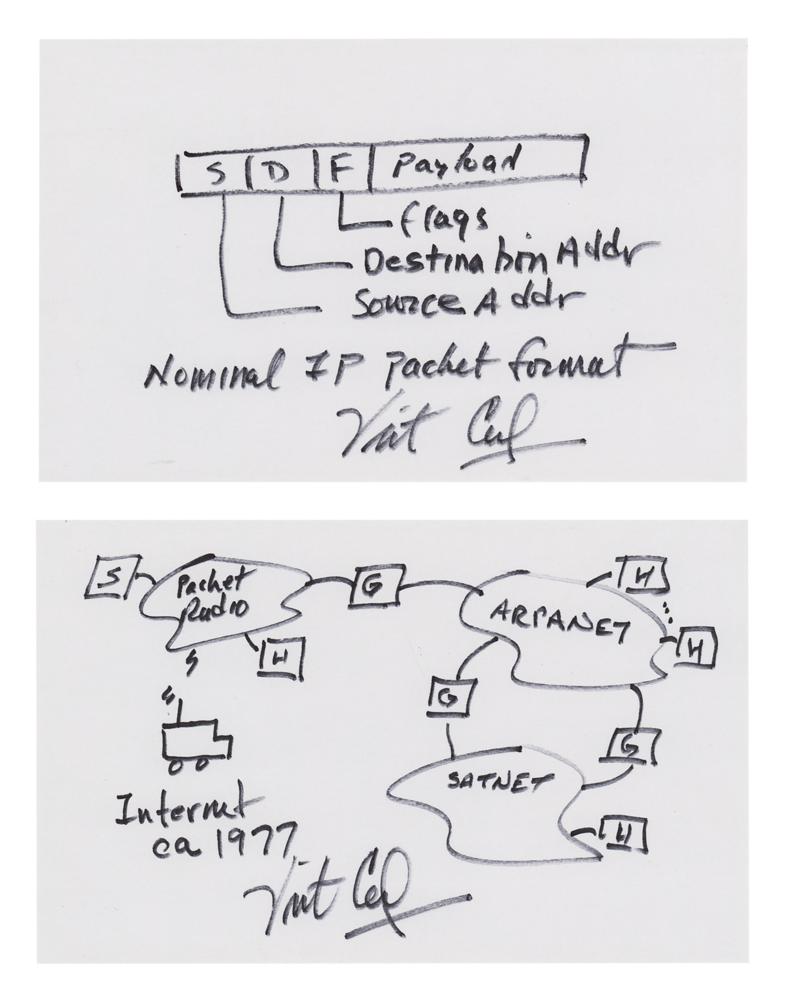 S D F Payload
flags
Destination Addr
Source Addr
Nominal IP packet format
Vint Cerf
S
Packet
Radio
G
ARPANET
H
H
H
G
G
SATNET
H
Internet
ca 1977
Vint Cerf